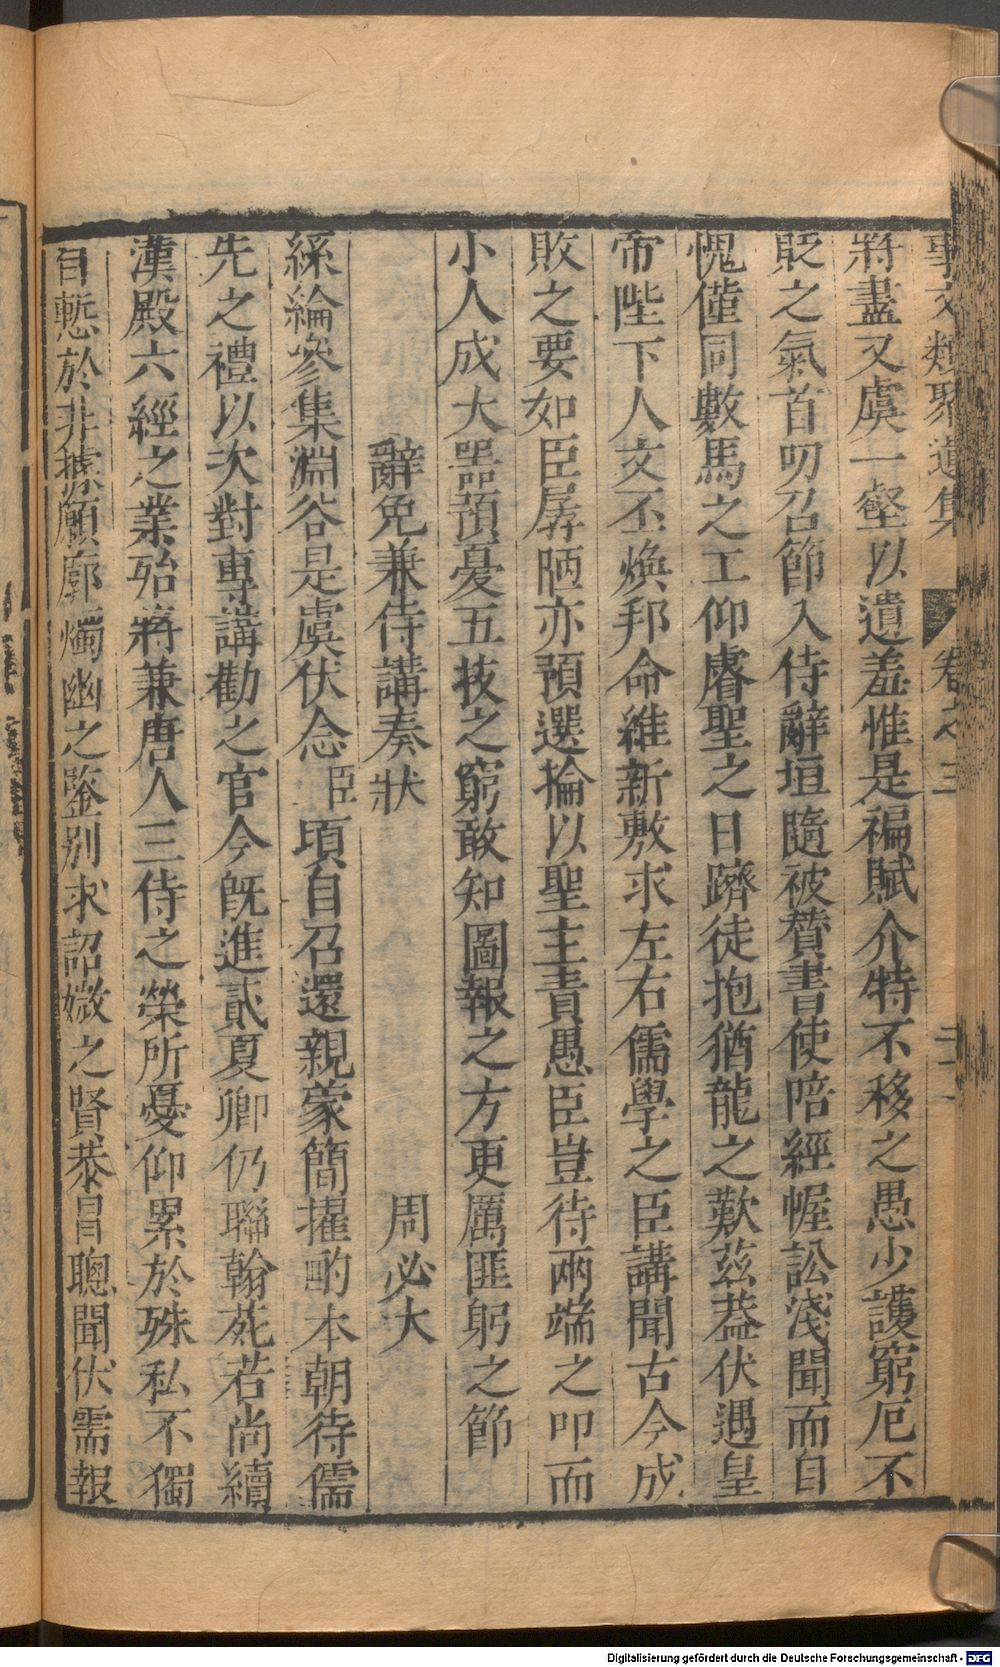 事文類聚遺集 卷之三
將盡又虞一壑以遺羞惟是褊賦介特不移之愚少護窮厄不
貶之氣首叨召節入侍辭垣隨被贊書使陪經幄訟淺聞而自
愧僅同數馬之工仰睿聖之日躋徒抱猶龍之歎茲蓋伏遇皇
帝陛下人文丕煥邦命維新敷求左右儒學之臣講聞古今成
敗之要如臣孱陋亦預選掄以聖主責愚臣豈待兩端之叩而
小人成大噐預憂五技之窮敢知圖報之方更厲匪躬之節
辭免兼侍講奏狀 周必大
絲綸參集淵谷是虞伏念臣頃自召還親蒙簡擢酌本朝待儒
先之禮以次對專講勸之官今既進貳夏卿仍聯翰苑若尚續
漢殿六經之業殆將兼唐人三侍之榮所憂仰累於殊私不獨
自慙於非據願廓燭幽之鑒別求詔媺之賢恭冒聰聞伏需報
Digitalisierung gefördert durch die Deutsche Forschungsgemeinschaft - DFG